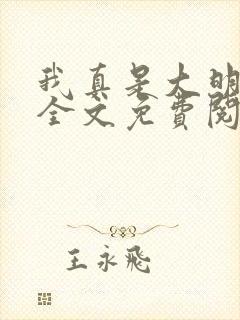 我真是大明
全文免費閱
王永飛